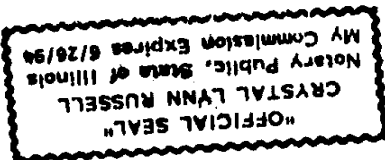 "OFFICIAL SEAL"
CRYSTAL LYNN RUSSELL
Notary Public, State of Illinois
My Commission Expires 6/26/94